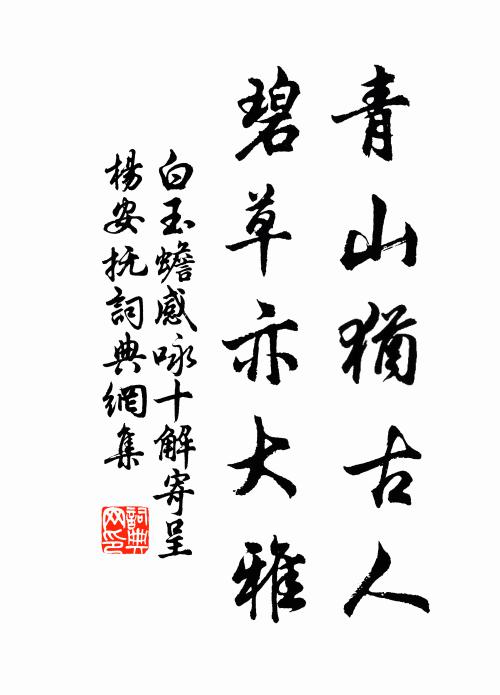 青山猶古人
碧草亦大雅
白玉蟾感咏十解寄呈
楊安抚詞典網集
詞典
网印